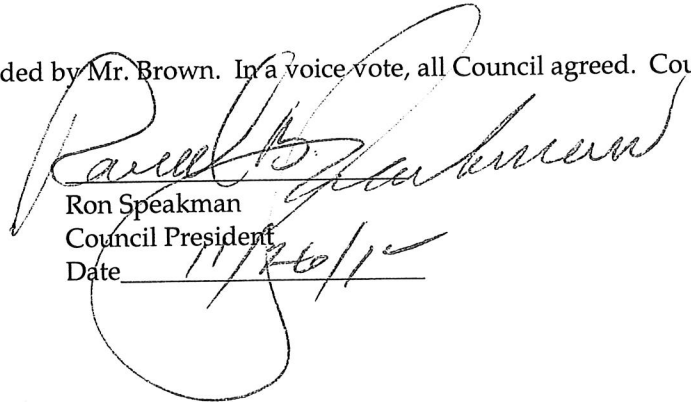 ded by Mr. Brown.  In a voice vote, all Council agreed.  Cou
Ron Speakman
Council President
Date 11/26/1